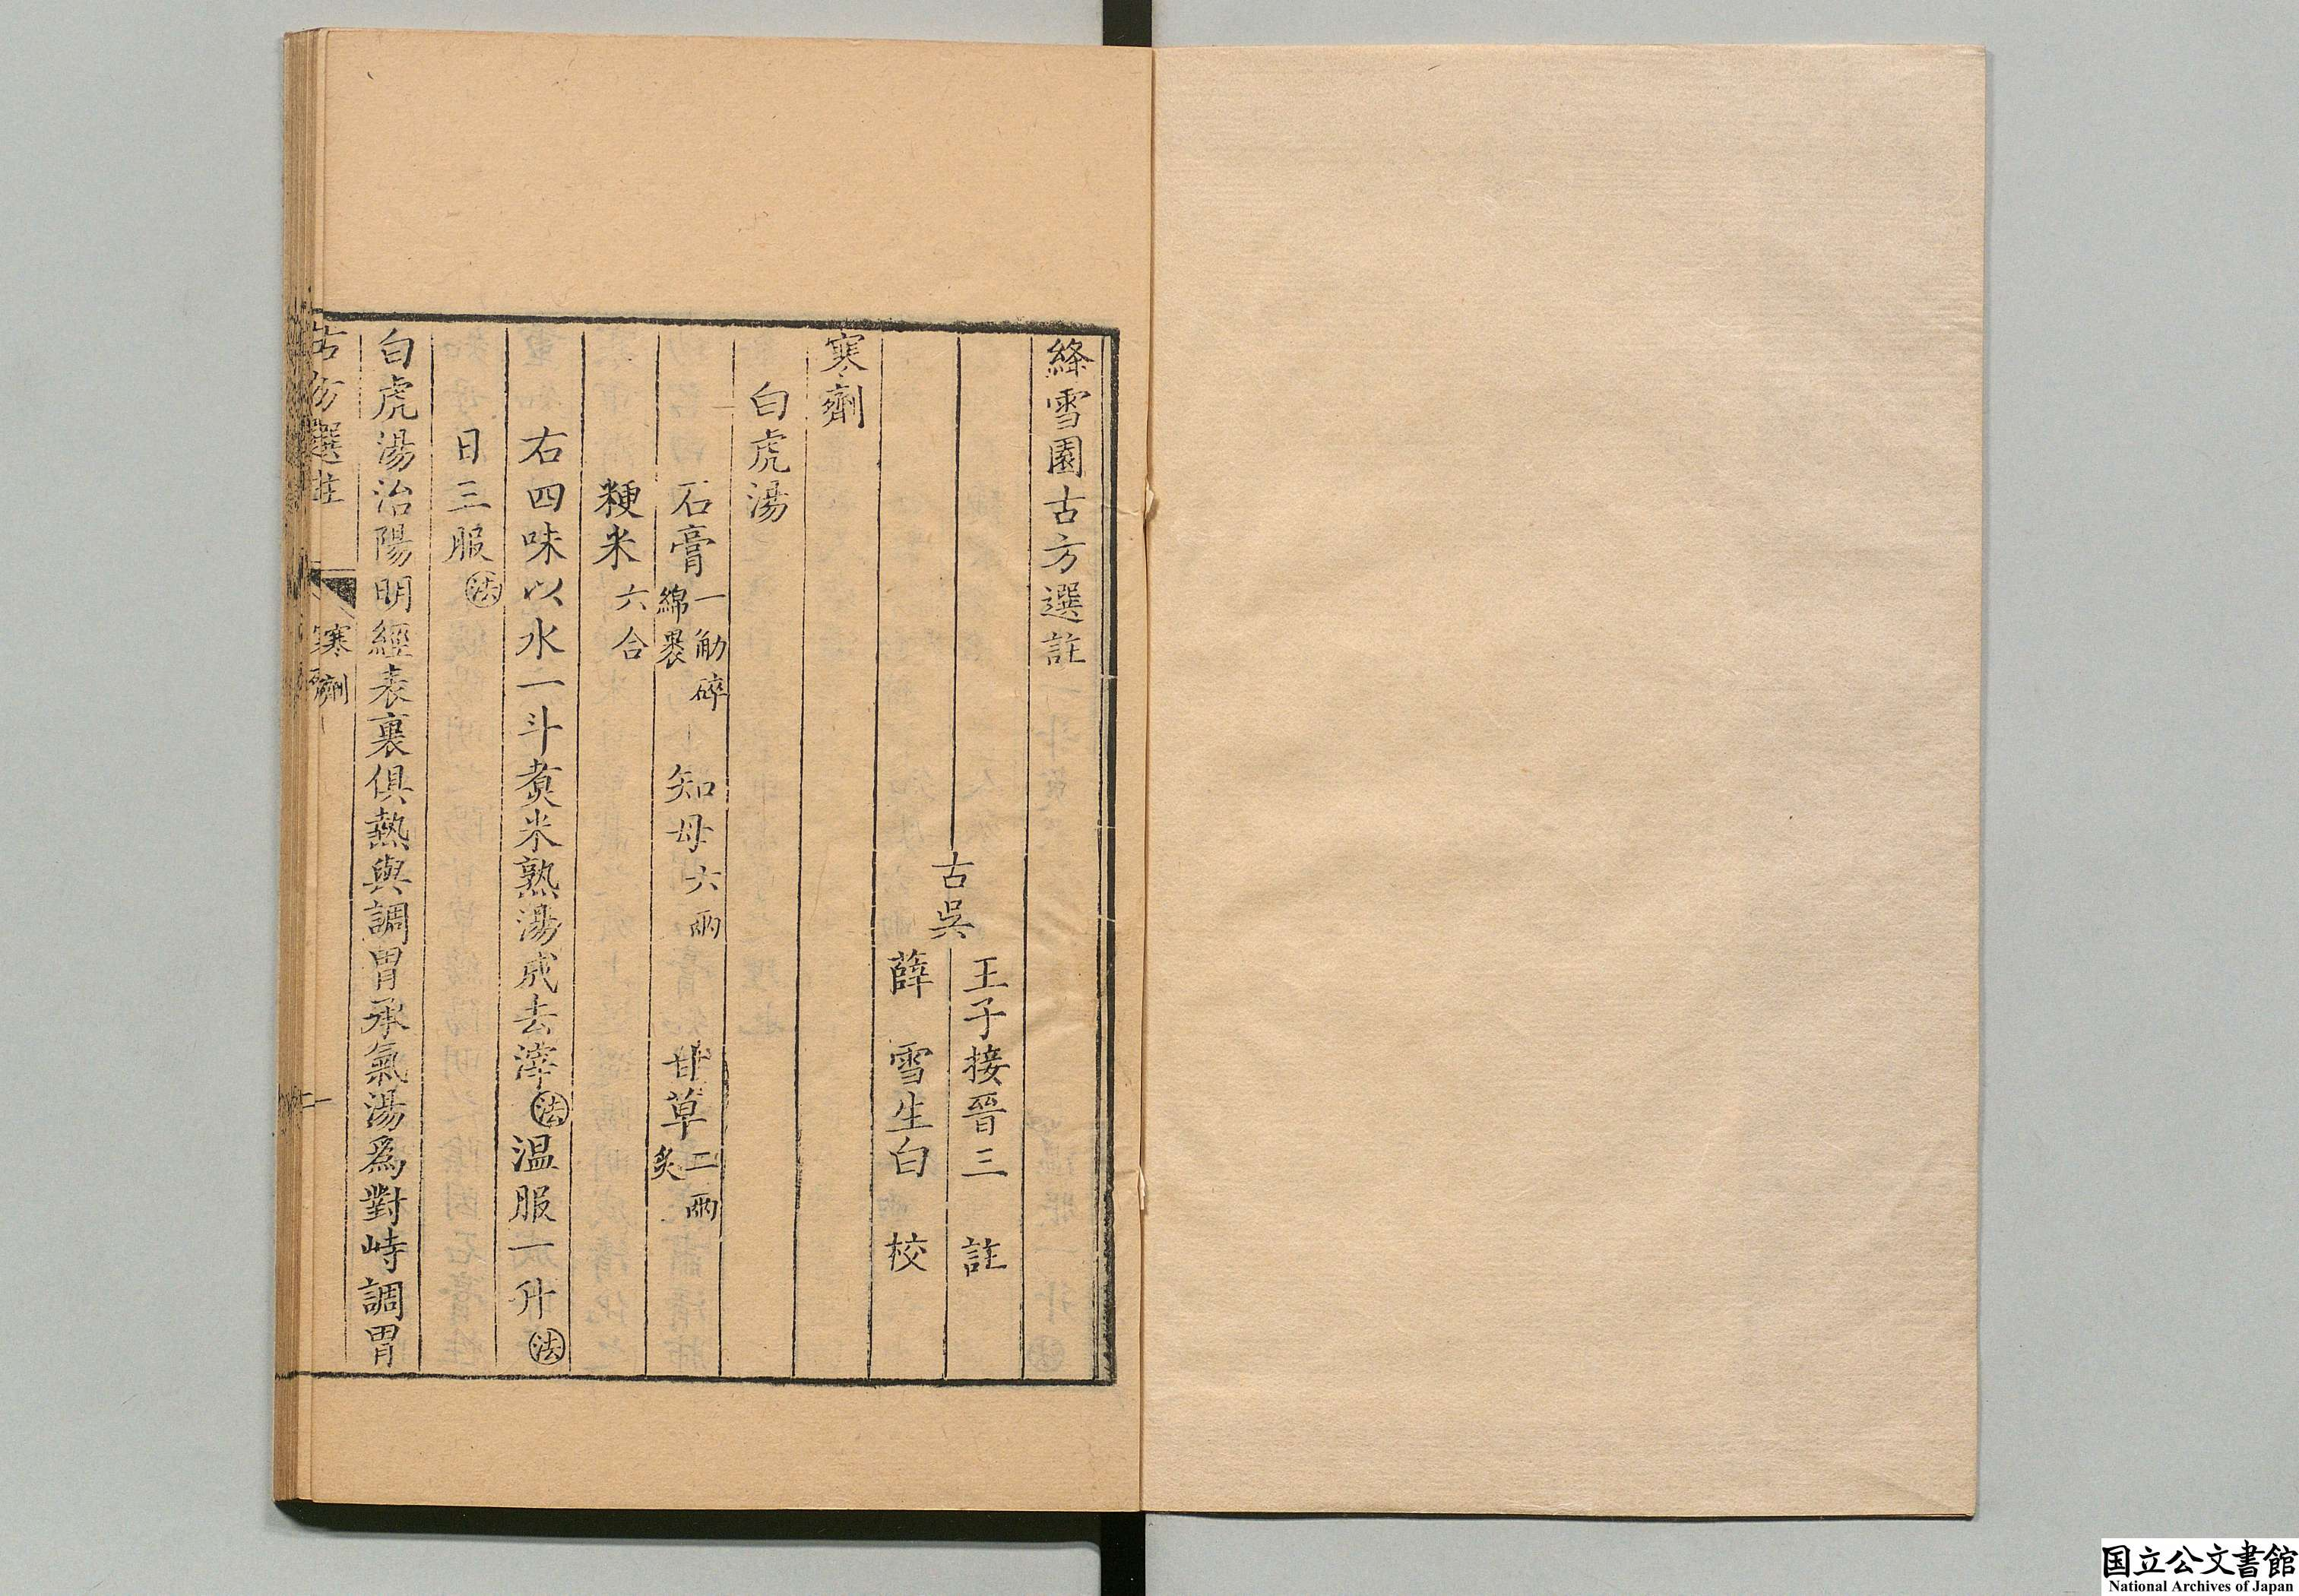 絳雪園古方選註
古吳
王子接晉三　註
薛　雪生白　校
寒劑
白虎湯
石膏一觔碎綿裹　知母六兩　甘草二兩炙
粳米六合
右四味以水一斗煑米熟湯成去滓法温服一升法
日三服法
白虎湯治陽明經表裏俱熱與調胃承氣湯爲對峙調胃
古方選註　寒劑　一
国立公文書館
National Archives of Japan